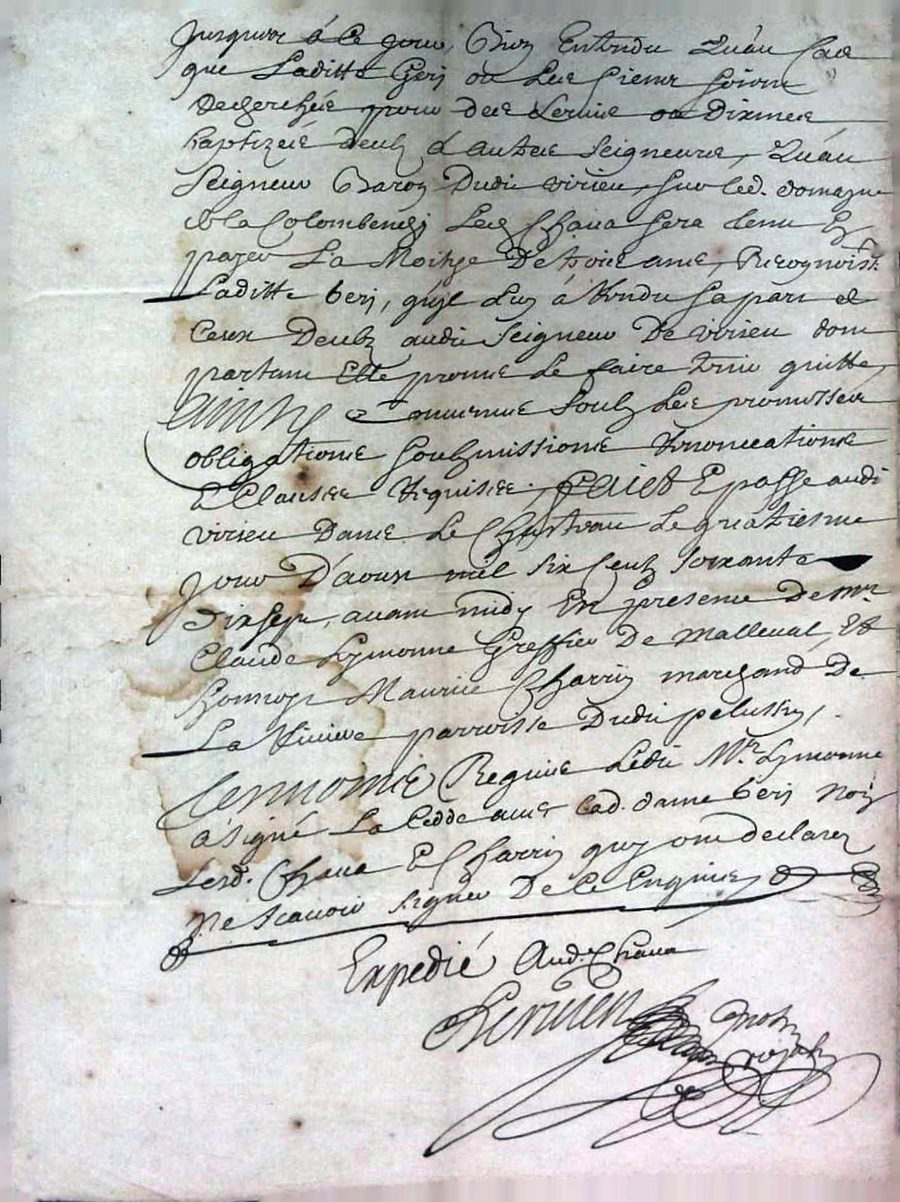 Jusques à ce jour, Bien Entendu Qu'au Cas
que Laditte Geri ou Les siens soient
Recherchés pour des Servis ou Dixmes
baptizeé deubz d'autres Seigneurs, Qu'au
Seigneur Baron Dudit virieu, sur led. domayne
de la Colombenchi Led Chava sera tenu En
payer La Moitye De trois ans, Recognoist
Laditte Geri, qu'il Luy à Rendu sa part et
Ceux Deubz audit Seigneur De virieu dont
partant Elle promet Le faire tenir quitte,
ainsy Convenus soubz Les promesses
obligations soubzmissions Renonciations
E Clauses Requises, faict E passe audit
virieu Dans Le Chasteau Le quatriesme
Jour D'aoust mil six Cent soixante
Dixsept, avant midy En presence De Mre
Claude Lymonne Greffier De Malleval, Et
honneste Maurice Charrin marchand De
La Riviere parroisse Dudit pelussin,
tesmoins Requis Ledit Mre Lymonne
a signé La Cedde avec Lad. dame Geri non
Lesd. Chava E Charrin quy ont declarez
Ne scavoir signer De Ce Enquis
Expedié Aud. Chava
not
royal